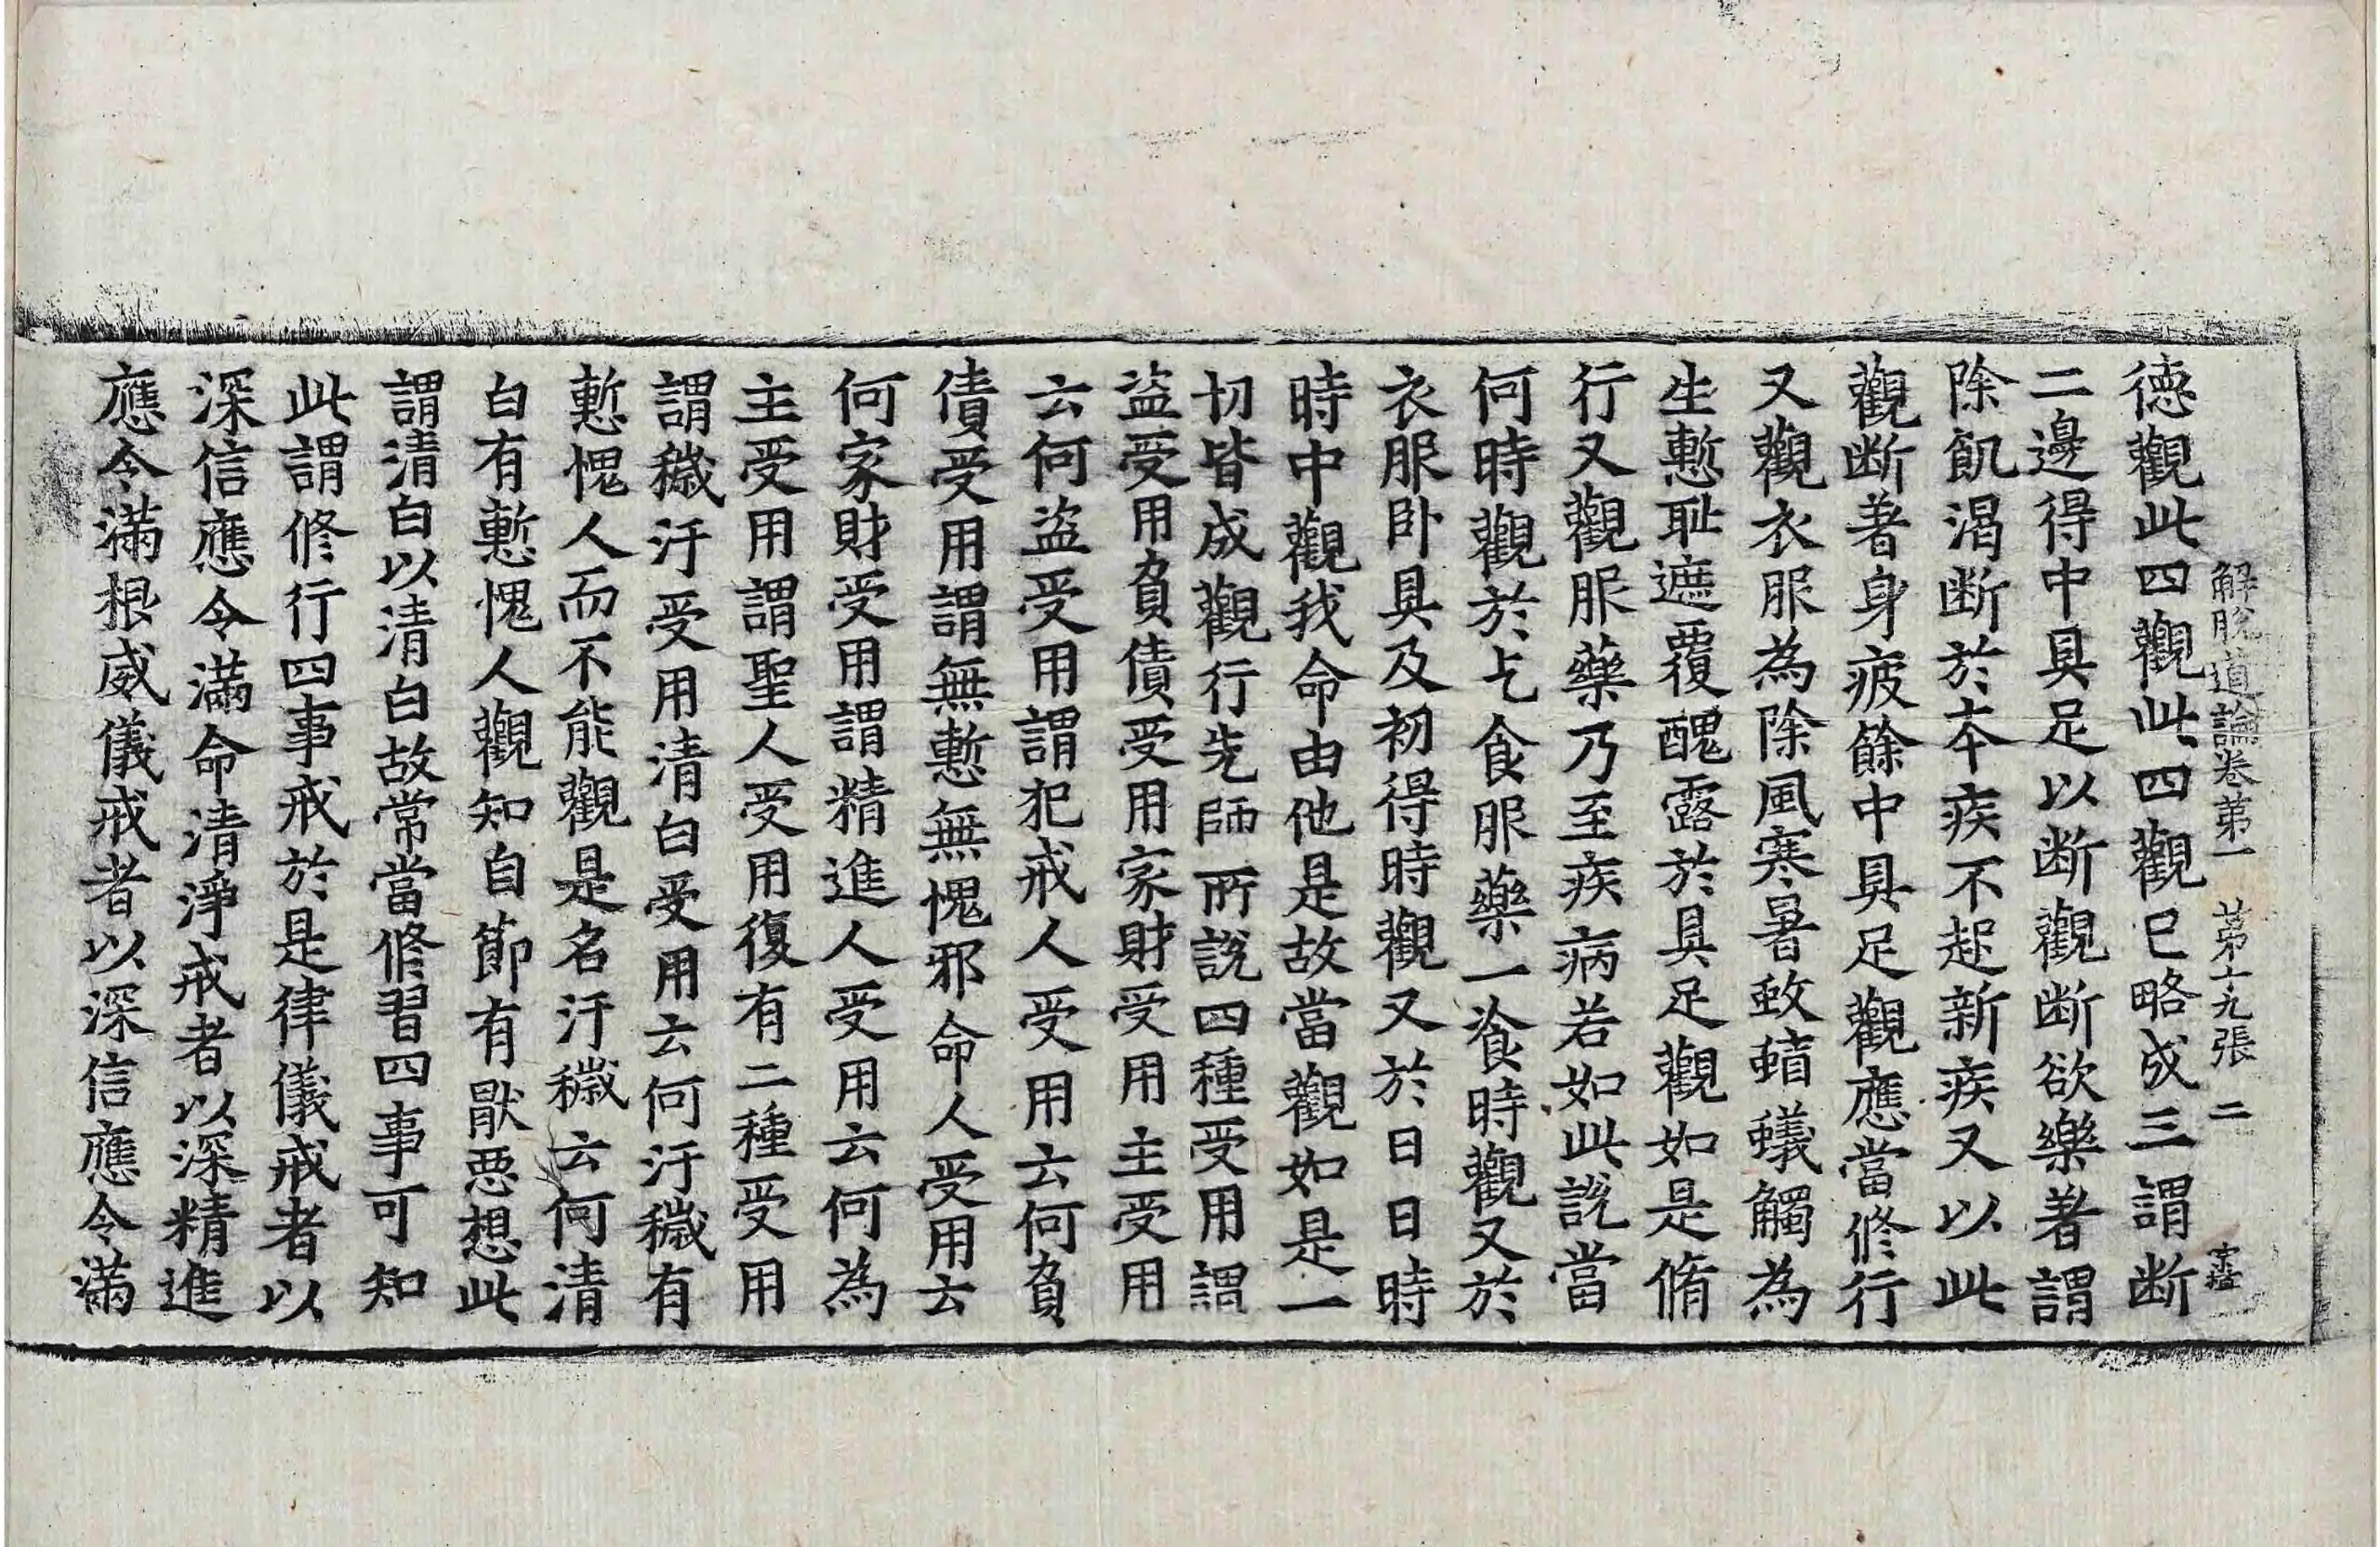 解脫道論卷第一 第十九張 二
德觀此四觀此四觀已略成三謂断
二邊得中具足以断觀断欲樂著謂
除飢渴断於本疾不起新疾又以此
觀断著身疲餘中具足觀應當修行
又觀衣服為除風寒暑蚊蝱蟻觸為
生慙耻遮覆醜露於具足觀如是脩
行又觀服藥乃至疾病若如此說當
何時觀於乞食服藥一飡時觀又於
衣服卧具及初得時觀又於日日時
時中觀我命由他是故當觀如是一
切皆成觀行先師所說四種受用謂
盜受用負債受用家財受用主受用
云何盜受用謂犯戒人受用云何負
債受用謂無慙無愧邪命人受用云
何家財受用謂精進人受用云何為
主受用謂聖人受用復有二種受用
謂穢汙受用清白受用云何汙穢有
慙愧人而不能觀是名汙穢云何清
白有慙愧人觀知自節有猒惡想此
謂清白以清白故常當修習四事可知
此謂修行四事戒於是律儀戒者以
深信應令滿命清淨戒者以深精進
應令滿根威儀戒者以深信應令滿